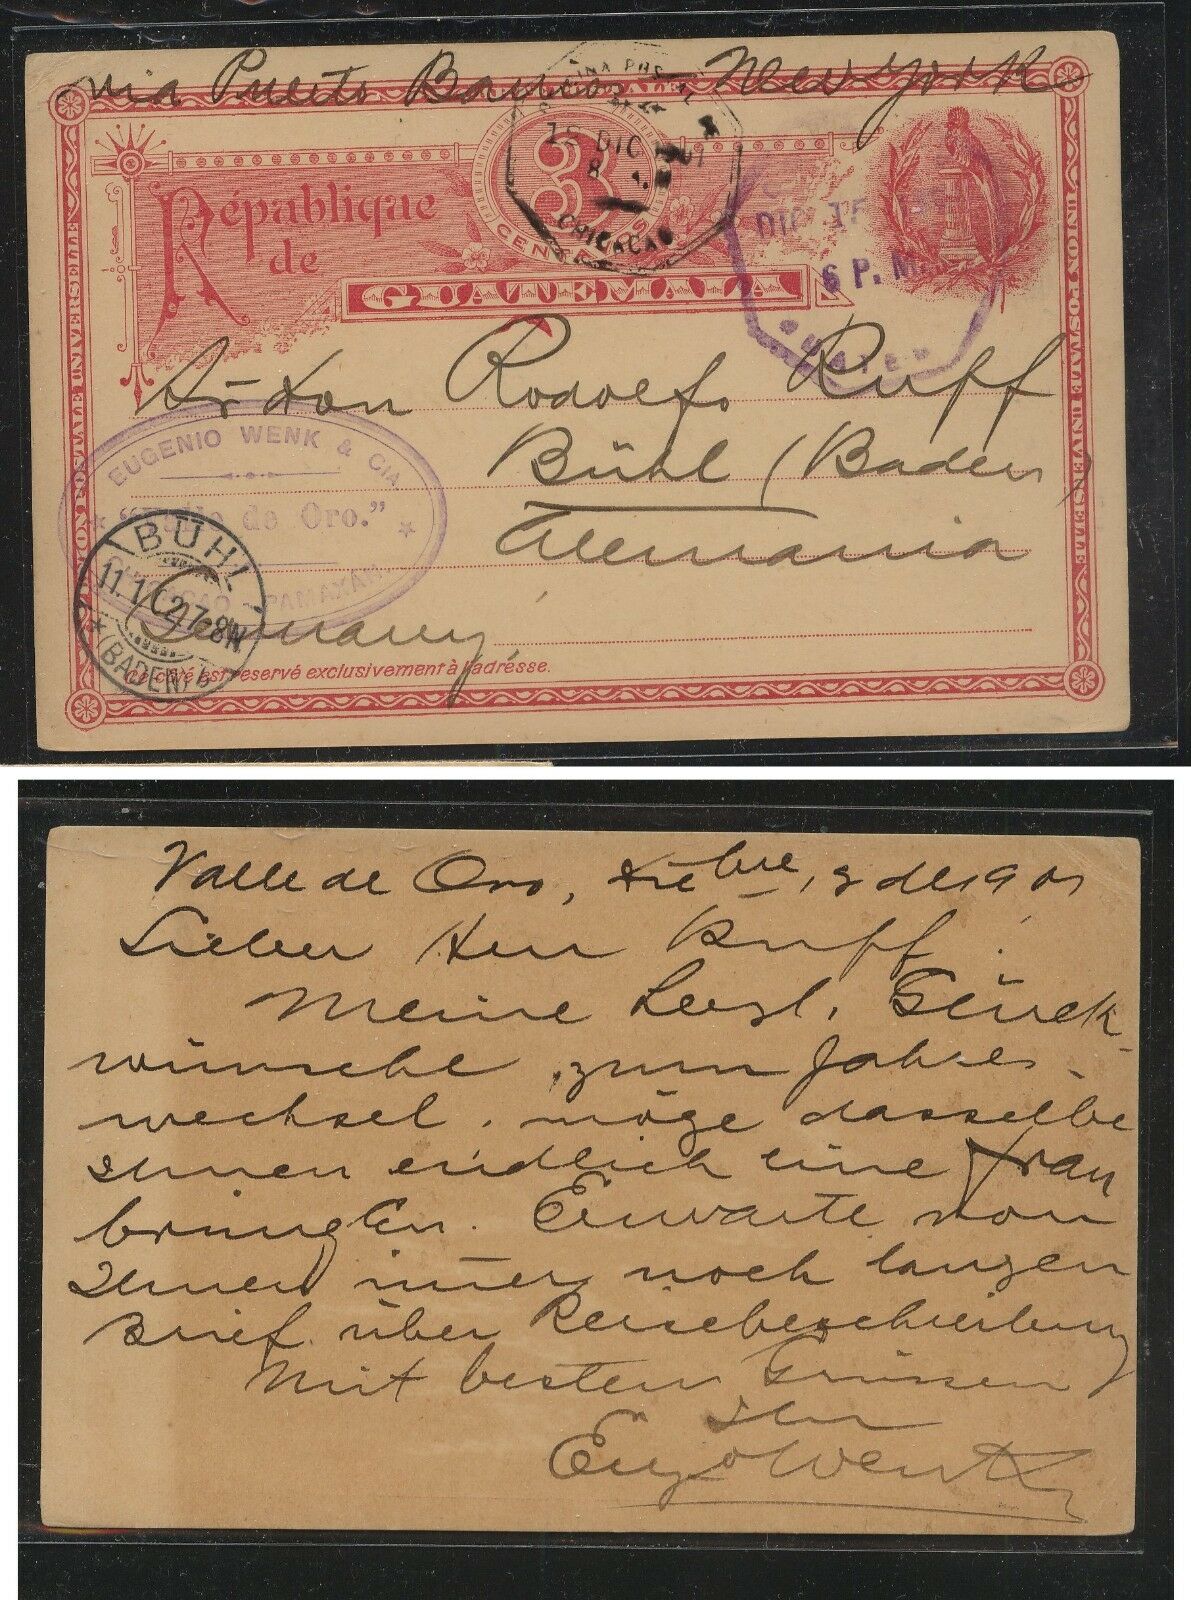 via Puerto Barrios New york
UNION POSTALE UNIVERSELLE
République
de
GUATEMALA
3
CENTAVOS
15 DIC 1901
CHICACAO
DIC 15
6 P. M.
Sr Don Rodolfo Ruff
Bühl (Baden)
Alemania
Germany
EUGENIO WENK & CIA.
"Valle de Oro."
CHICACAO, PAMAXÁN.
BÜHL
11.1.02.7-8N
(BADEN) b
Ce côté est reservé exclusivement à l'adrésse.
UNION POSTALE UNIVERSELLE
Valle de Oro, de 1901
Lieber Herr Ruff!
Meine Glück-
wünsche zum Jahres-
wechsel. möge dasselbe
Ihnen endlich eine Frau
bringen. Erwarte von
Ihnen immer noch langen
Brief über Reisebeschreibung
Mit besten Grüssen
Ihr
Eugo Wenk